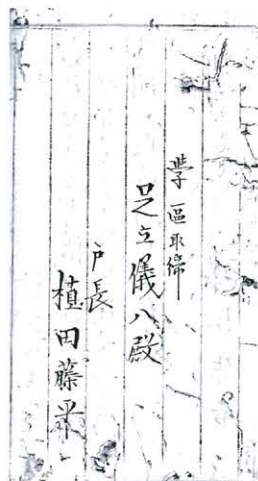 學區取締
足立儀八殿
戸長
植田藤平